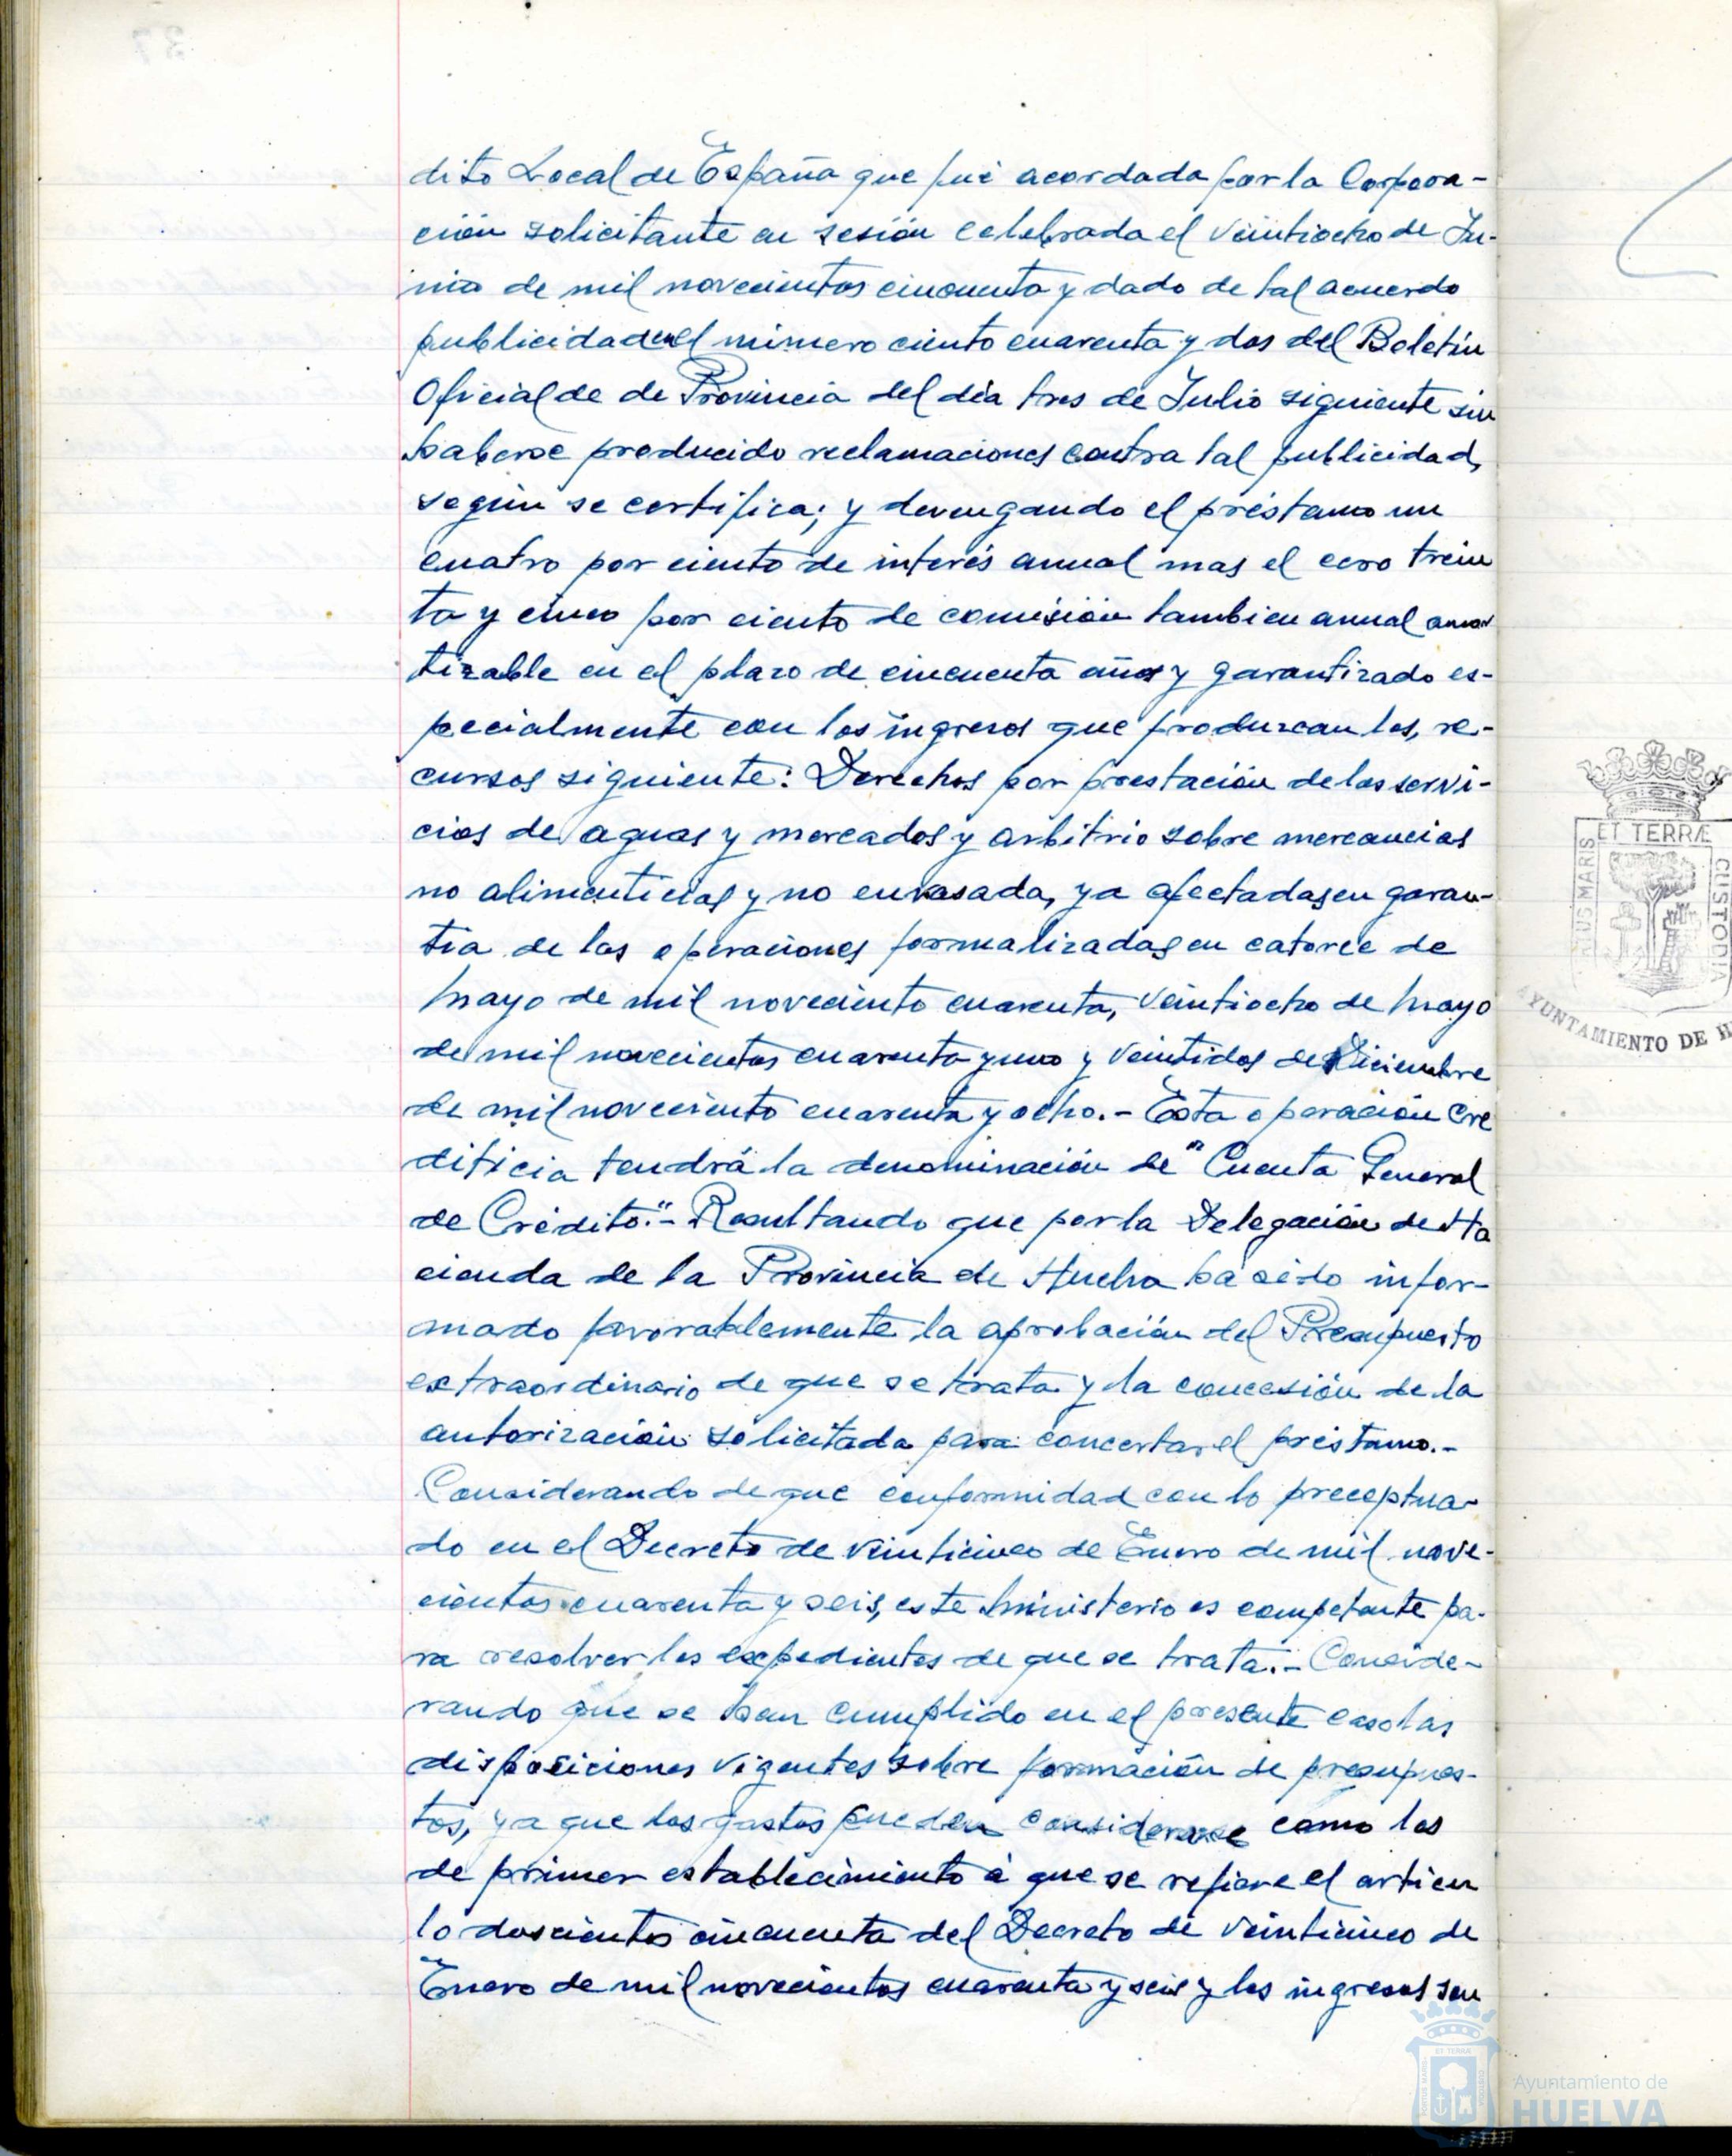 dito Local de España que fué acordada por la Corpora-
ción solicitante en sesión celebrada el veintiocho de Ju-
nio de mil novecientos cincuenta y dado de tal acuerdo
publicidad en el número ciento cuarenta y dos del Boletín
Oficial de de Provincia del día tres de Julio siguiente sin
haberse producido reclamaciones contra tal publicidad,
según se certifica; y devengando el préstamo un
cuatro por ciento de interés anual mas el cero trein
ta y cinco por ciento de comisión tambien anual amor
tizable en el plazo de cincuenta años y garantizado es-
pecialmente con los ingresos que produzcan los, re-
cursos siguiente: Derechos por prestación de los servi-
cios de aguas y mercados y arbitrio sobre mercancias
no alimenticias y no envasada, ya afectadas en garan-
tia de las operaciones formalizadas en catorce de
Mayo de mil noveciento cuarenta, veintiocho de Mayo
de mil novecientos cuarenta y uno y veintidos de Diciembre
de mil noveciento cuarenta y ocho.- Esta operación cre
diticia tendrá la denominación de "Cuenta General
de Crédito".- Resultando que por la Delegación de Ha
cienda de la Provincia de Huelva ha sido infor-
mado favorablemente la aprobación del Presupuesto
extraordinario de que se trata y la concesión de la
autorización solicitada para concertar el préstamo.-
Considerando de que conformidad con lo preceptua-
do en el Decreto de veinticinco de Enero de mil nove-
cientos cuarenta y seis, este Ministerio es competente pa-
ra resolver los expedientes de que se trata.- Conside-
rando que se han cumplido en el presente caso las
disposiciones vigentes sobre formación de presupues-
tos, ya que los gastos pueden considerarse como los
de primer establecimiento á que se refiere el articu
lo doscientos cincuenta del Decreto de veinticinco de
Enero de mil novecientos cuarenta y seis y los ingresos son
ET TERRÆ
CUSTODIA
AYUNTAMIENTO DE H
Ayuntamiento de
HUELVA